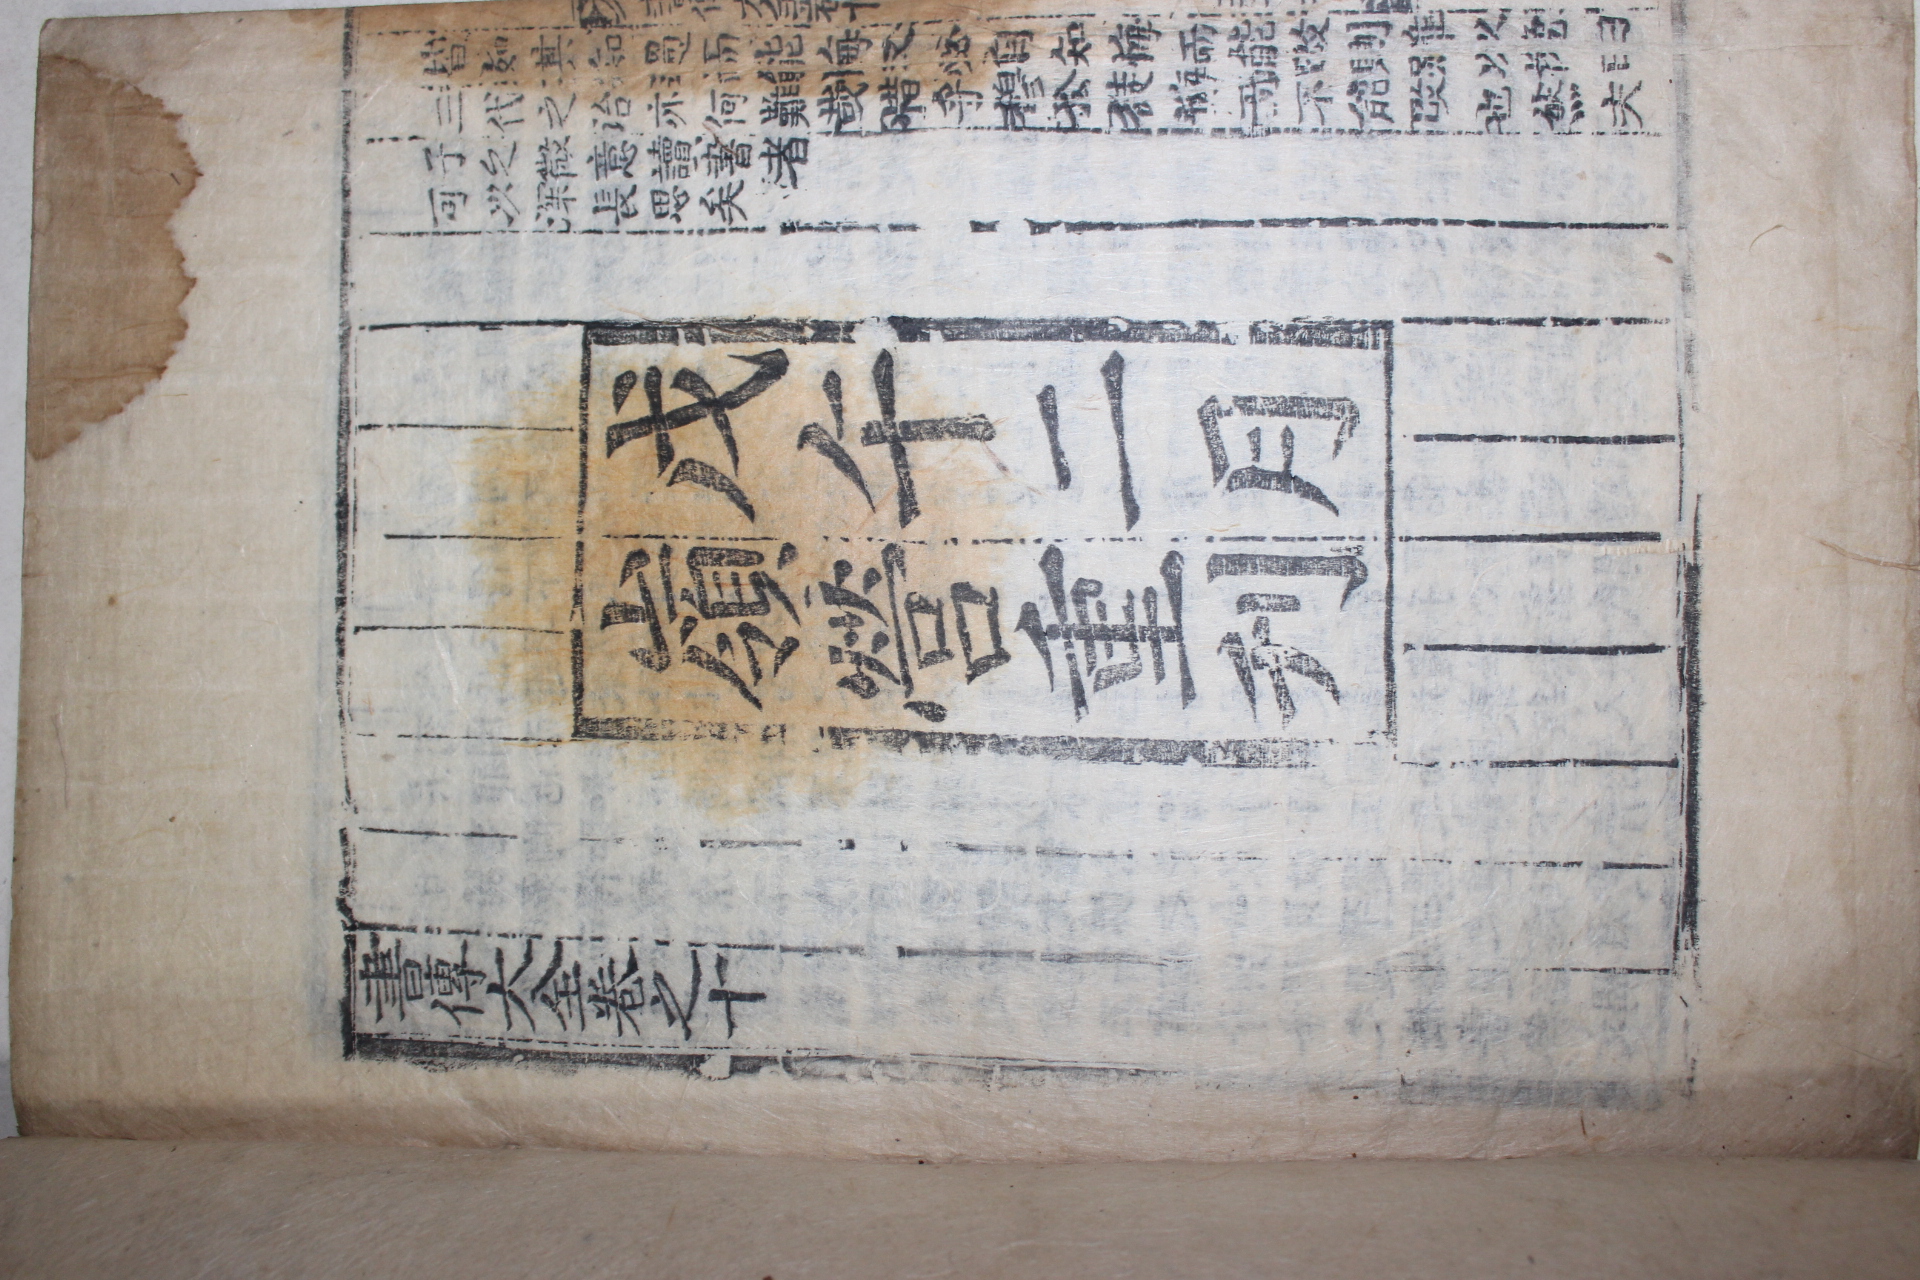 皆如其知過而能悔又必自知悔而能改則雖以穆由
三代之治亦何難哉惜乎穆公徒悔而不能改也然夫
子之微意讀書者
可以深長思矣
戊午二月
嶺營重刊
書傳大全卷之十